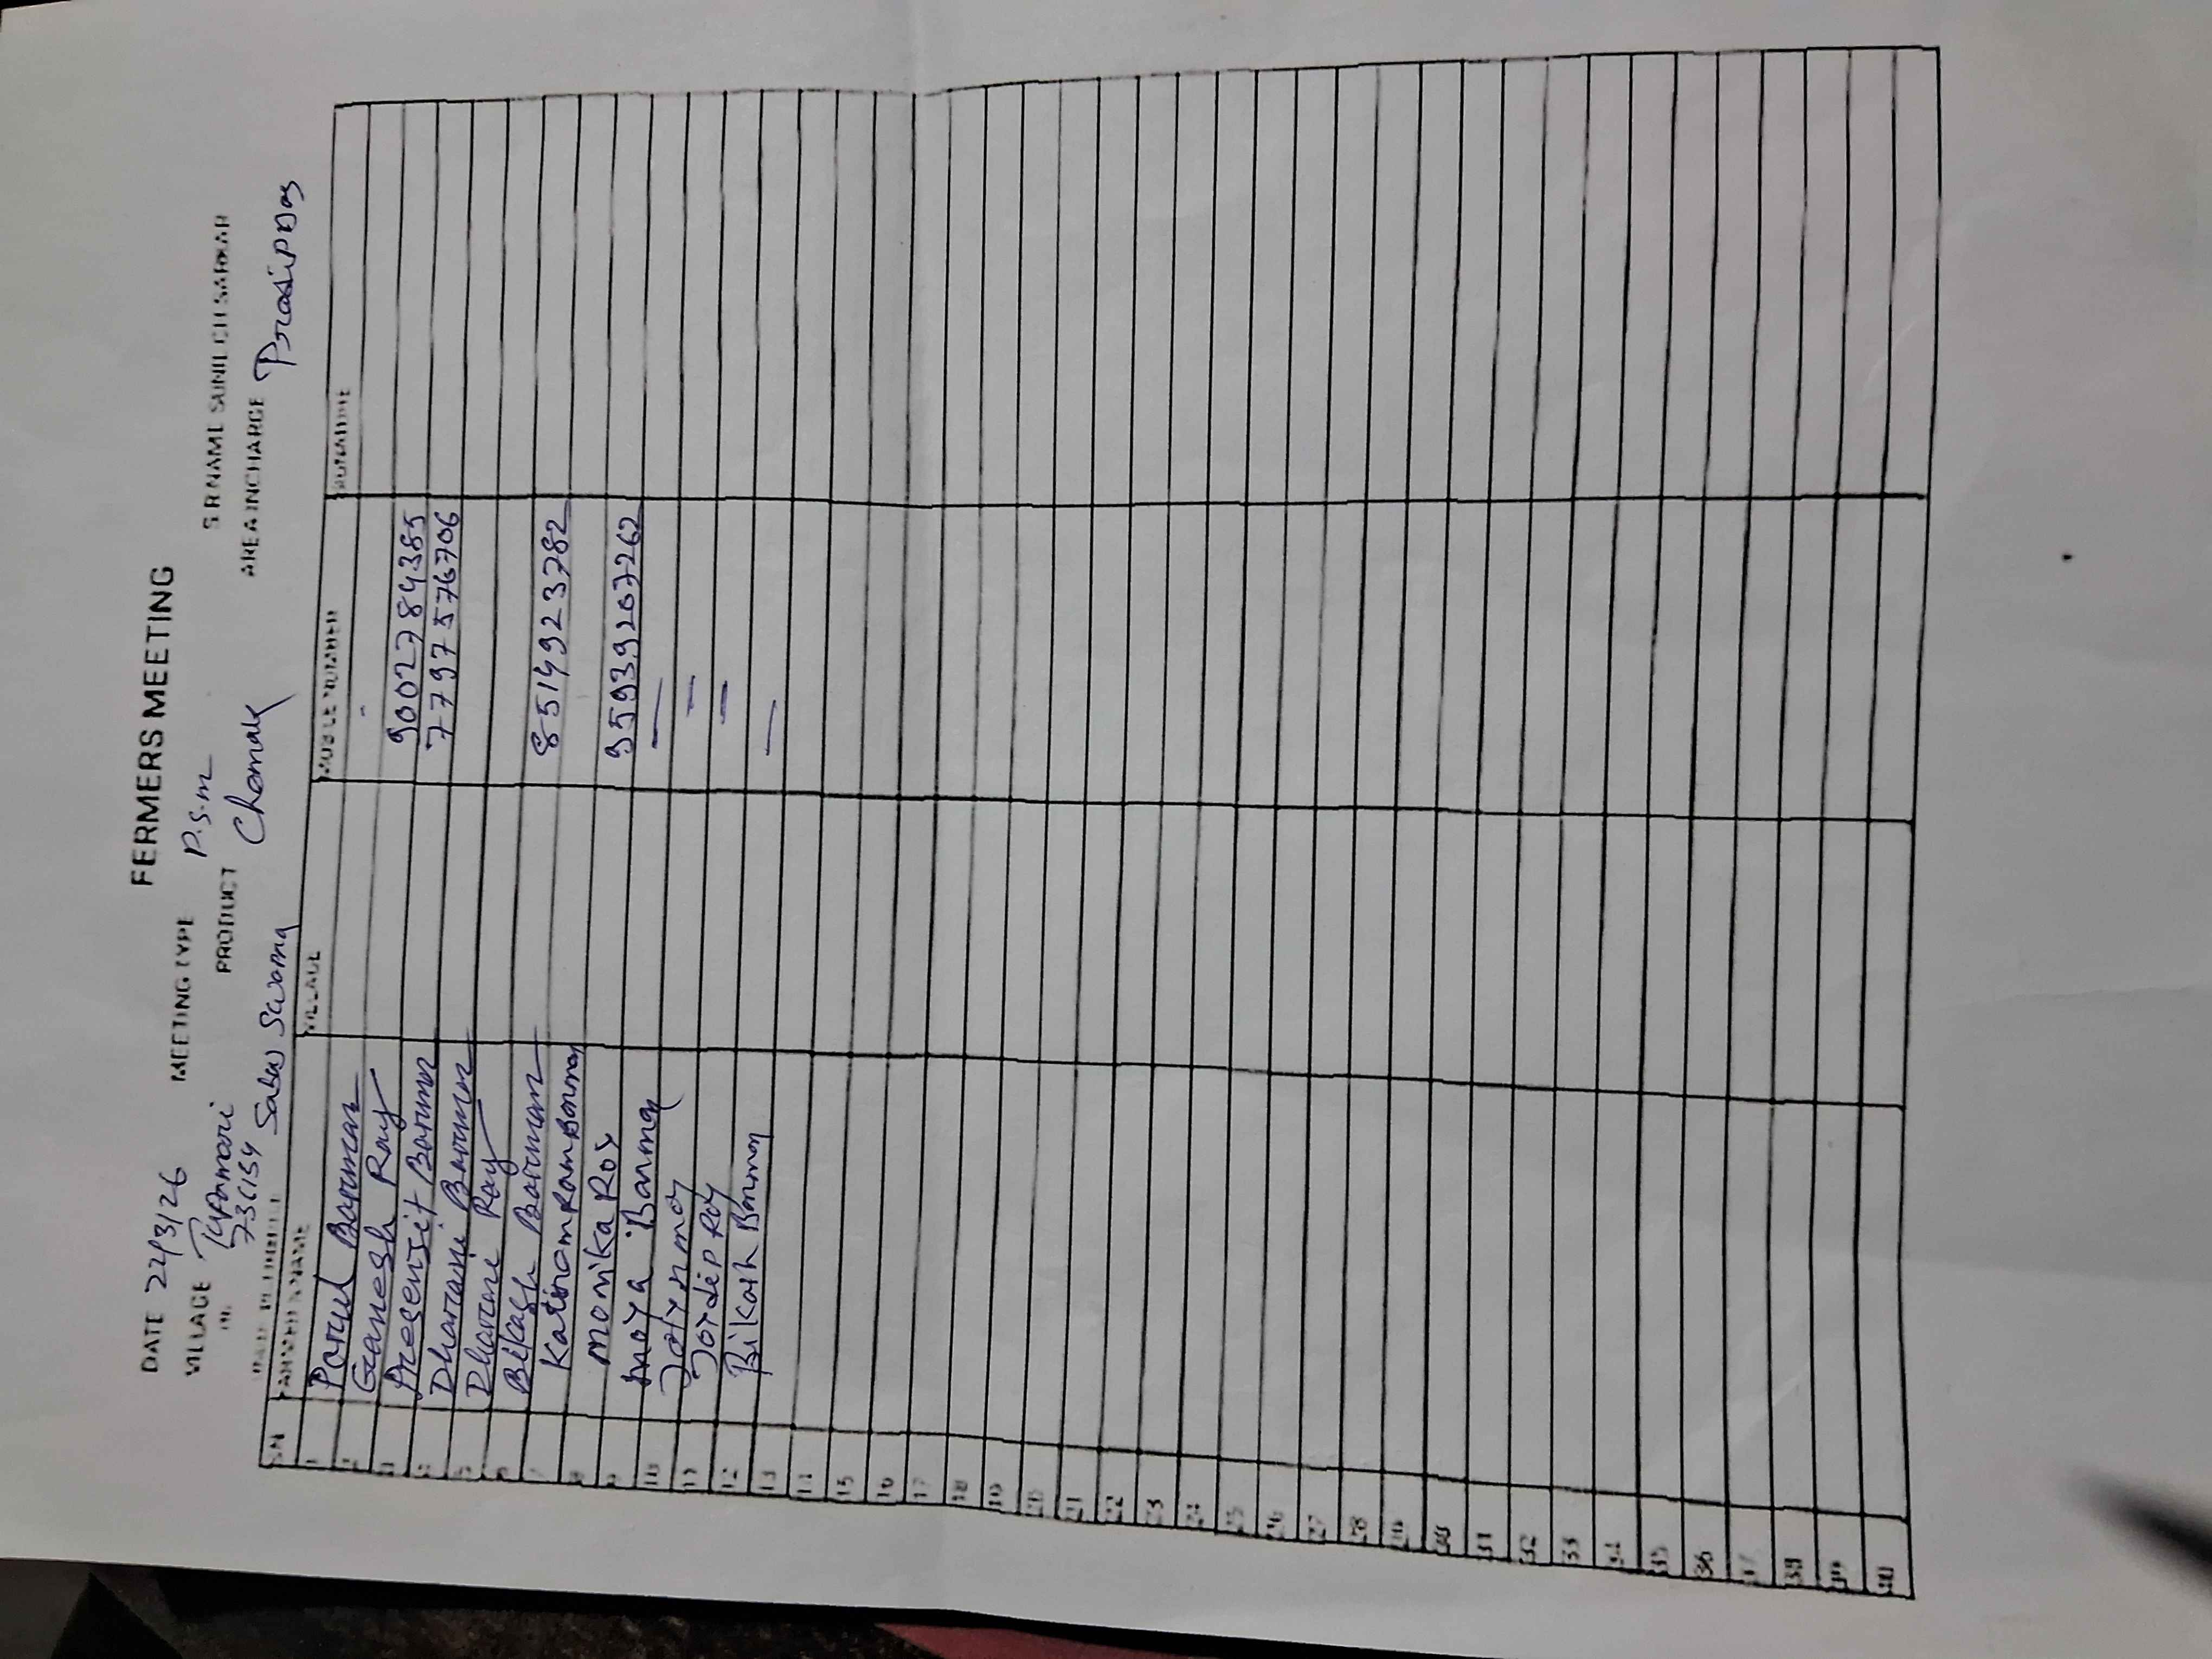 FERMERS MEETING
DATE 22/3/26 MEETING TYPE P.S.M S R NAME SUNIL CH SARKAR
VILLAGE Tupamari PRODUCT Chamak AREA INCHARGE Prasip Das
736154
Sabuj Swarna
SN FARMER NAME VILLAGE MOBILE NUMBER SIGNATURE
1 Parul Barman
2 Ganesh Ray -
3 Presenjit Barman 9002784385
4 Dharani Barman 7797576706
5 Dharani Ray
6 Bikash Barman
7 Katiram Ram Barman 8514923782
8 Monika Roy
9 Maya Barman 9593207262
10 —
11 Joydip Roy —
12 Bikash Barman —
13 —
14
15
16
17
18
19
20
21
22
23
24
25
26
27
28
29
30
31
32
33
34
35
36
37
38
39
40